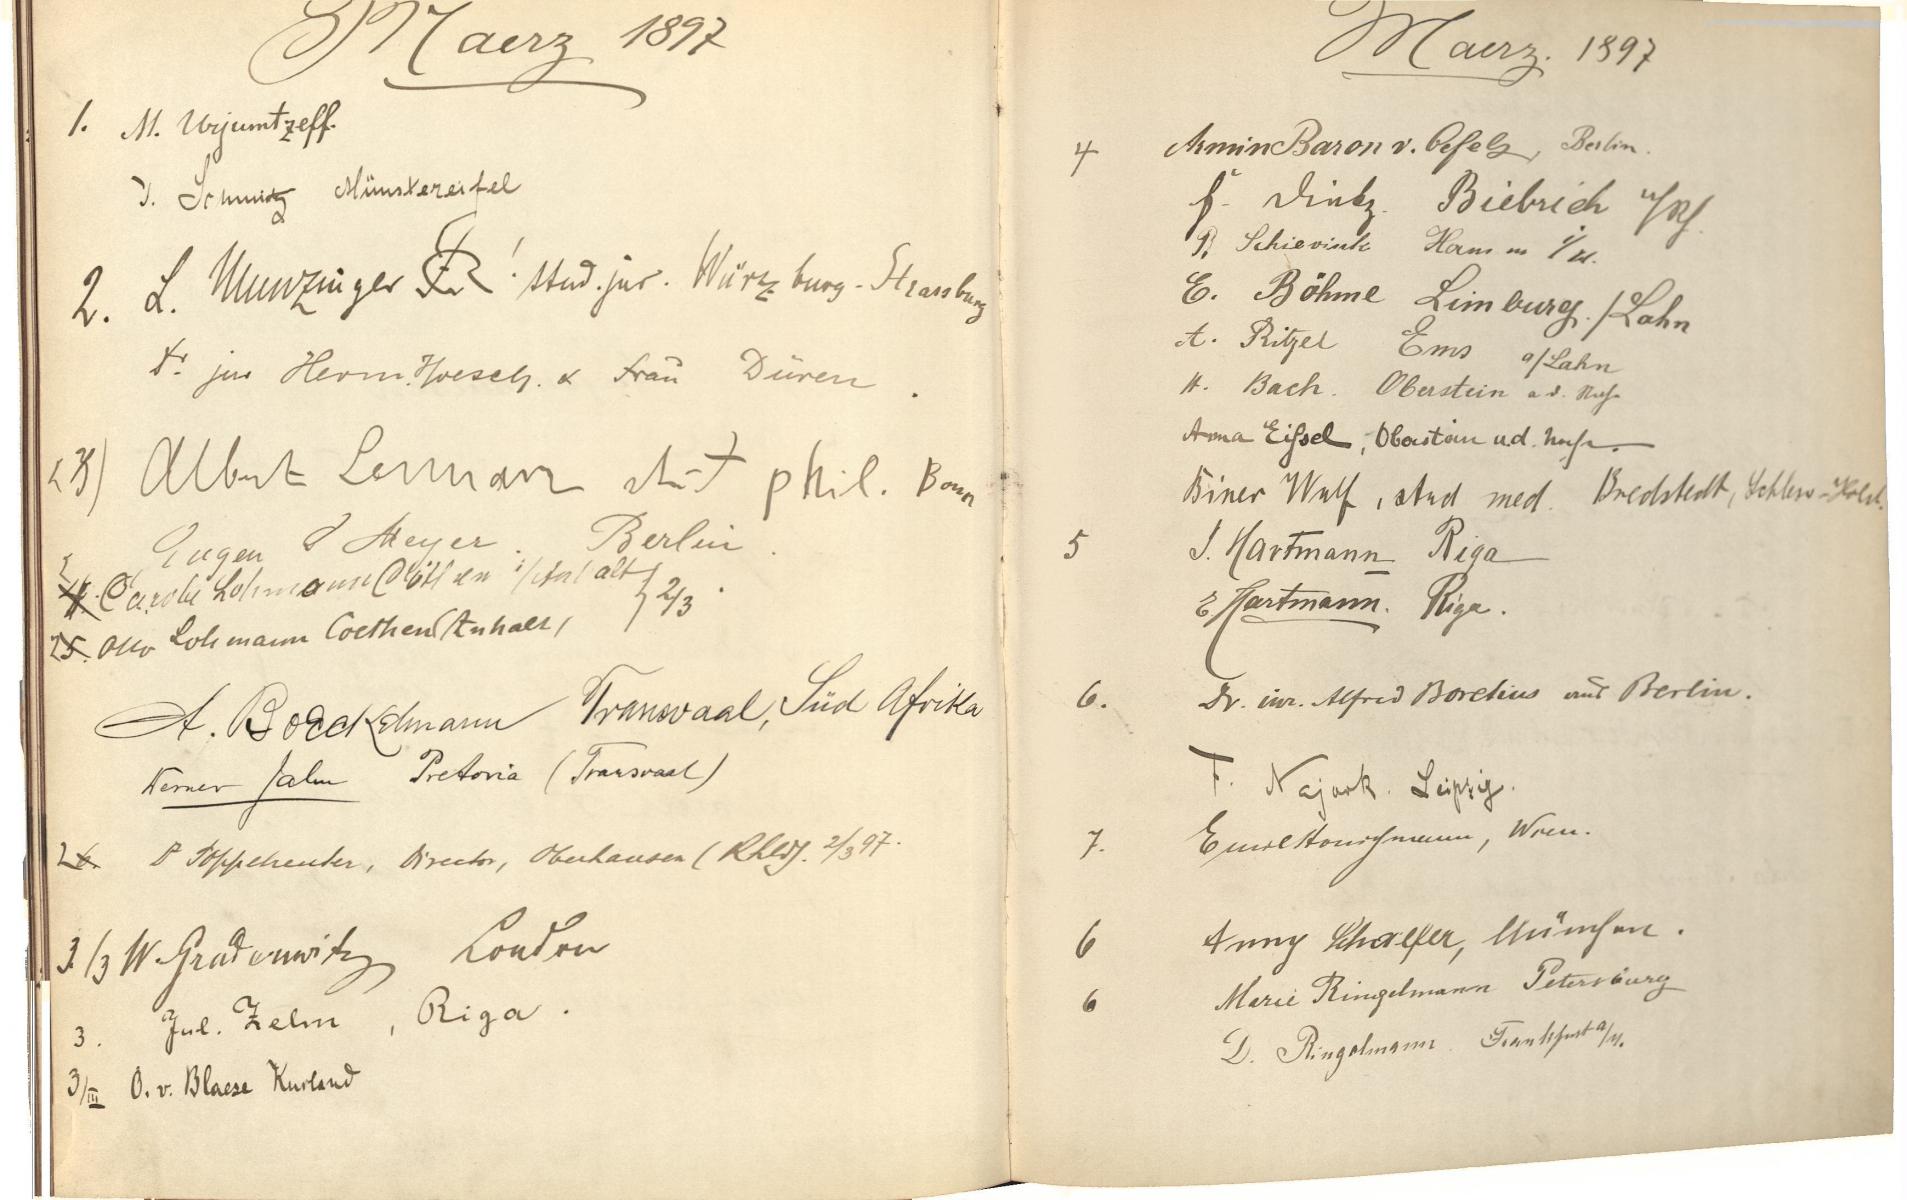 Maerz 1897
1. M. Urjumtzeff.
J. Schmitz Münstereifel
2. L. Munzinger ! stud. jur. Würzburg - Strassburg
Dr. jur Herm. Hoesch. & Frau Düren.
2) Albert Lermann phil. Bonn
Eugen Meyer. Berlin.
Lohmann Cöthen i/Anhalt } 2/3.
Otto Lohmann Coethen (Anhalt)
A. Boeckelmann Transvaal, Süd Afrika
Werner Jahn Pretoria (Transvaal)
2 Director, Oberhausen (Rhld). 2/3 97.
3./3 W. Gradenwitz London
3. Jul. Zelm, Riga.
3/III O. v. Blaese Kurland
Maerz. 1897
4 Armin Baron v. Berlin.
Dintz. Biebrich a/Rh.
Schievink Hamm i/W.
E. Böhme Limburg. /Lahn
A. Ritzel Ems a/Lahn
H. Bach. Oberstein a. d. Nahe
Anna Eissel, Oberstein a. d. Nahe.
Wulf, stud med. Bredstedt, Schlesw-Holst.
5 J. Hartmann Riga
E Hartmann. Riga.
6. Dr. iur. Alfred Boretius aus Berlin.
F. Najork. Leipzig.
7. Emil Honigmann, Wien.
6 Anny Schaefer, München.
6 Marie Ringelmann Petersburg
D. Ringelmann Frankfurt a/M.